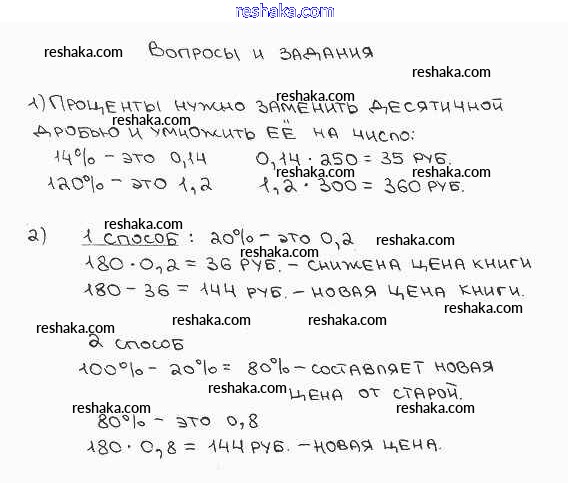 reshaka.com
reshaka.com ВОПРОСЫ И ЗАДАНИЯ reshaka.com
reshaka.com
1) ПРОЦЕНТЫ НУЖНО ЗАМЕНИТЬ ДЕСЯТИЧНОЙ
reshaka.com
ДРОБЬЮ И УМНОЖИТЬ ЕЁ НА ЧИСЛО:
reshaka.com
14% – ЭТО 0,14 0,14 · 250 = 35 РУБ.
reshaka.com reshaka.com
120% – ЭТО 1,2 1,2 · 300 = 360 РУБ.
reshaka.com
2) 1 СПОСОБ : 20% – ЭТО 0,2 reshaka.com
reshaka.com
180 · 0,2 = 36 РУБ. – СНИЖЕНА ЦЕНА КНИГИ
180 – 36 = 144 РУБ. – НОВАЯ ЦЕНА КНИГИ.
reshaka.com
reshaka.com reshaka.com reshaka.com
2 СПОСОБ
100% – 20% = 80% – СОСТАВЛЯЕТ НОВАЯ
reshaka.com
ЦЕНА ОТ СТАРОЙ.
reshaka.com reshaka.com
80% – ЭТО 0,8
180 · 0,8 = 144 РУБ. – НОВАЯ ЦЕНА.
reshaka.com reshaka.com